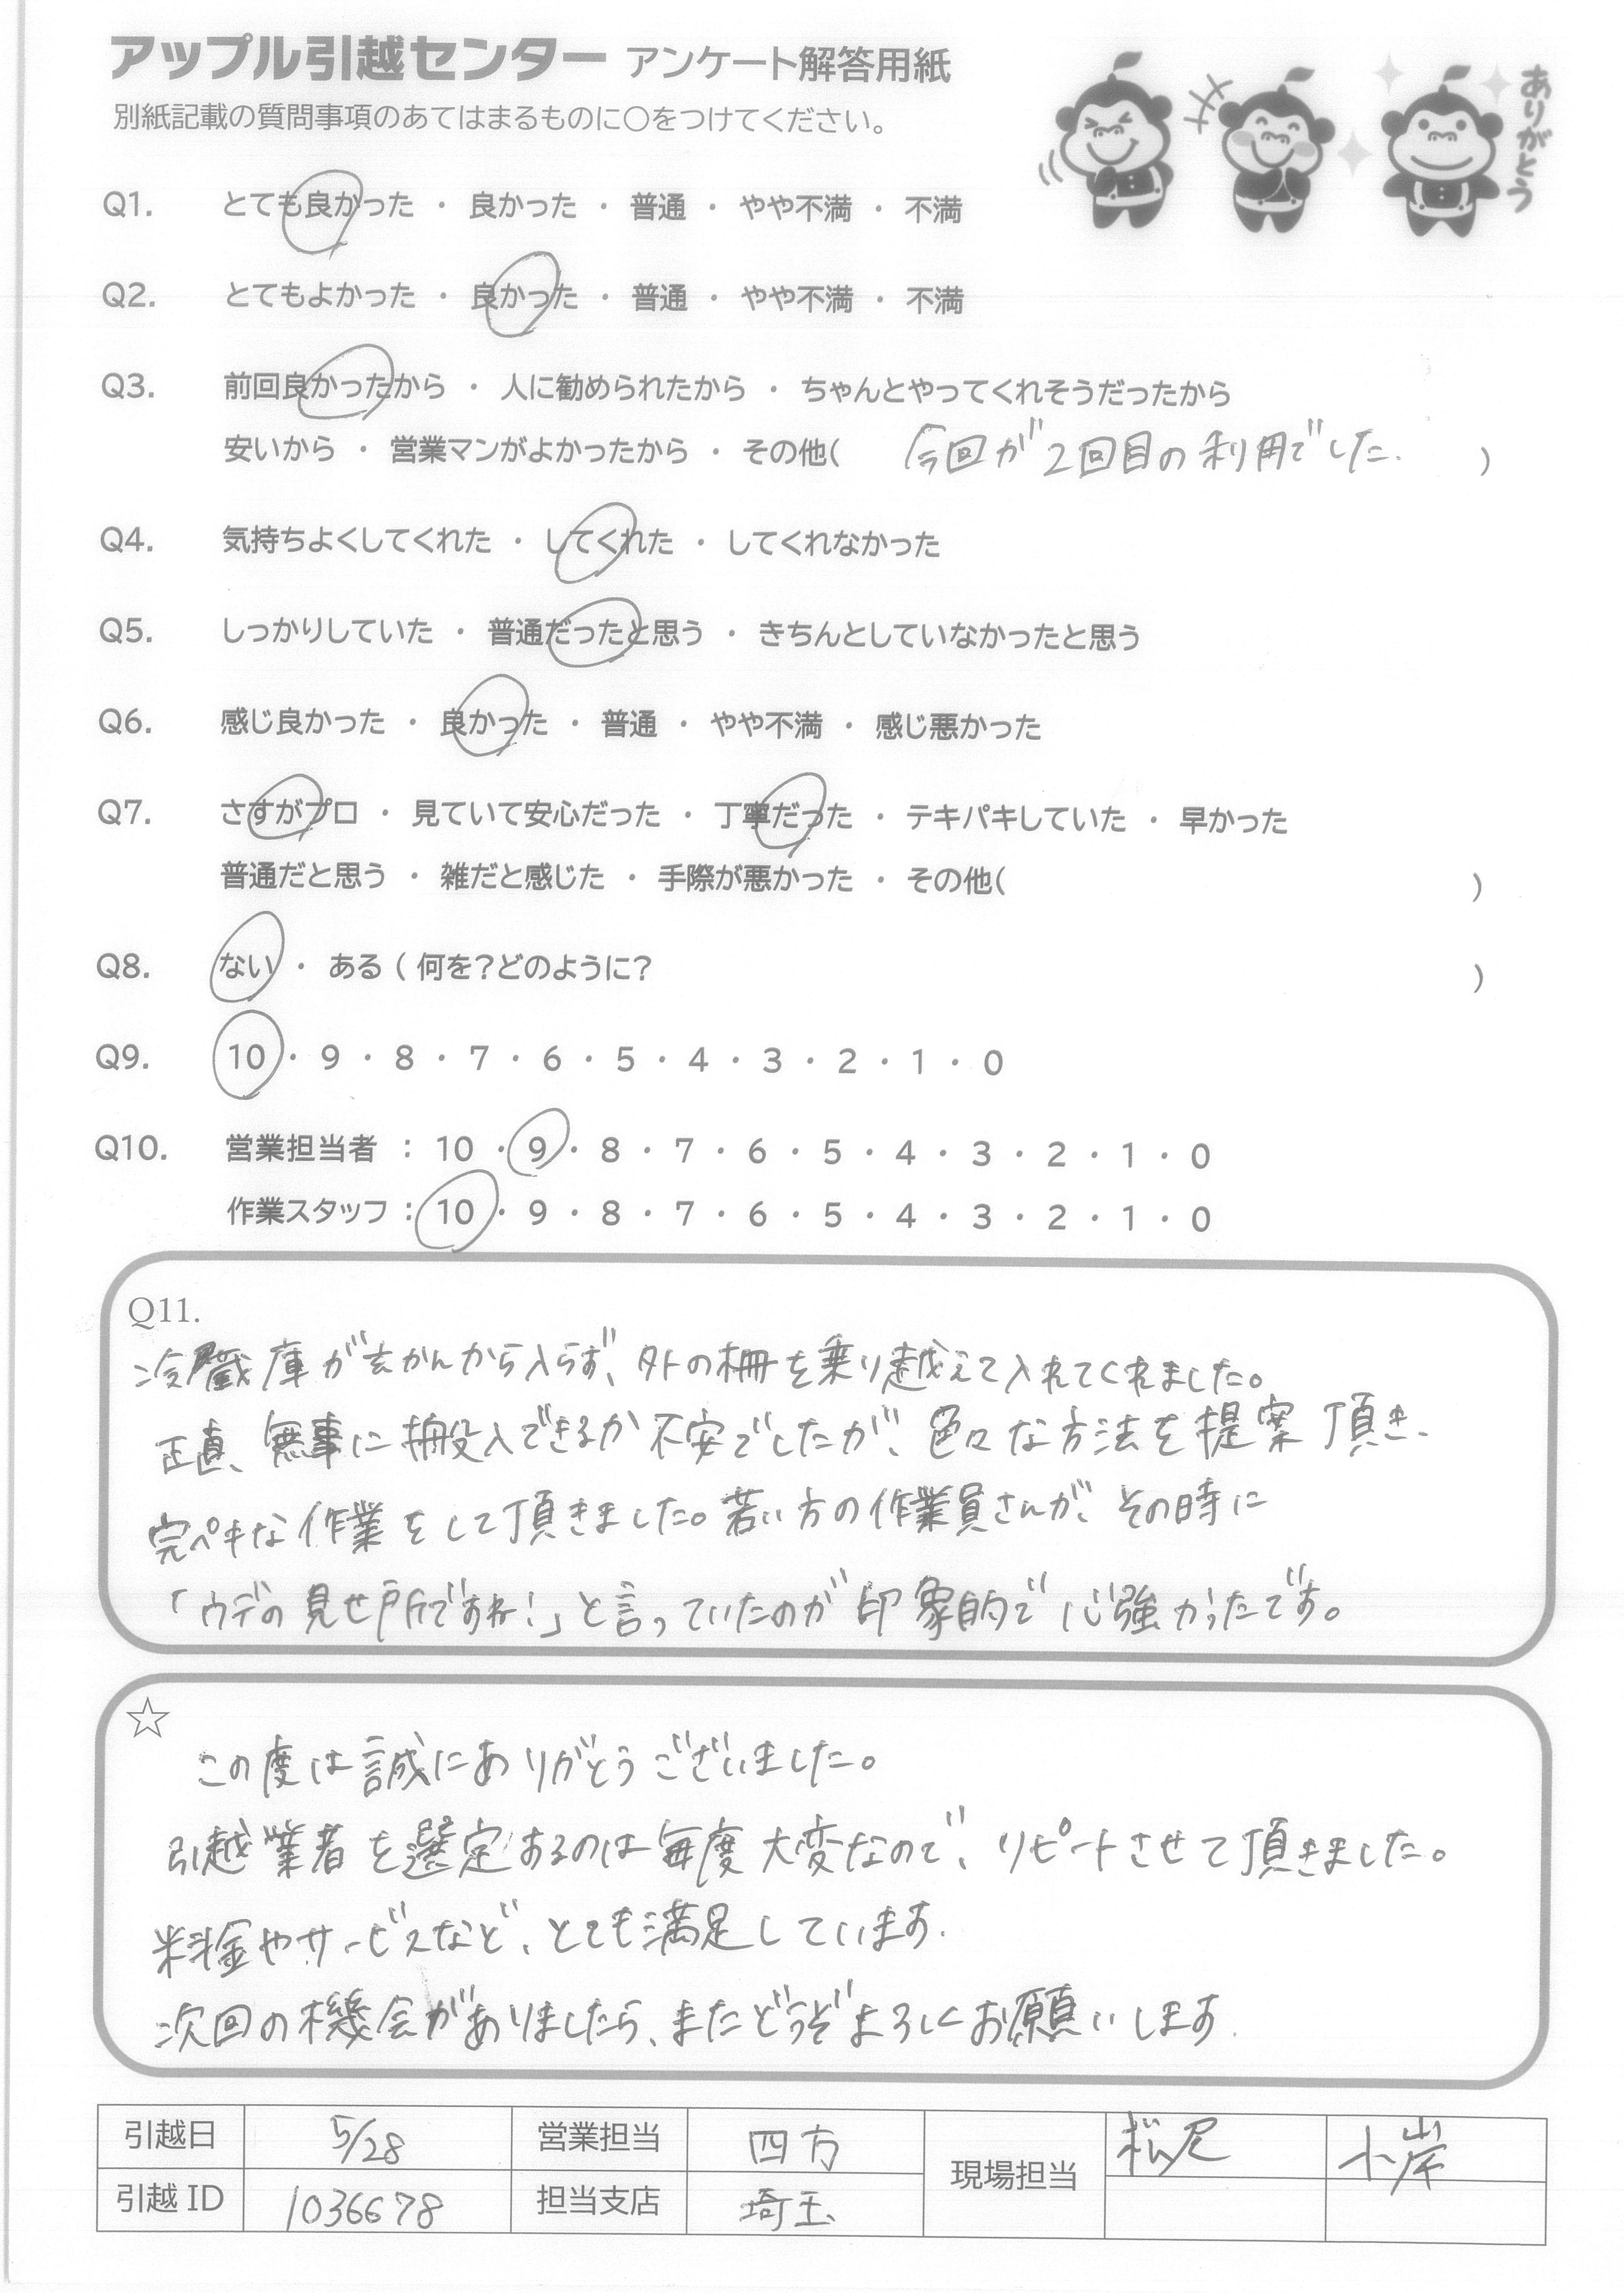 アップル引越センター アンケート解答用紙
別紙記載の質問事項のあてはまるものに○をつけてください。
ありがとう
Q1. とても良かった ・ 良かった ・ 普通 ・ やや不満 ・ 不満
Q2. とてもよかった ・ 良かった ・ 普通 ・ やや不満 ・ 不満
Q3. 前回良かったから ・ 人に勧められたから ・ ちゃんとやってくれそうだったから
安いから ・ 営業マンがよかったから ・ その他( 今回が2回目の利用でした. )
Q4. 気持ちよくしてくれた ・ してくれた ・ してくれなかった
Q5. しっかりしていた ・ 普通だったと思う ・ きちんとしていなかったと思う
Q6. 感じ良かった ・ 良かった ・ 普通 ・ やや不満 ・ 感じ悪かった
Q7. さすがプロ ・ 見ていて安心だった ・ 丁寧だった ・ テキパキしていた ・ 早かった
普通だと思う ・ 雑だと感じた ・ 手際が悪かった ・ その他( )
Q8. ない ・ ある ( 何を?どのように? )
Q9. 10 ・ 9 ・ 8 ・ 7 ・ 6 ・ 5 ・ 4 ・ 3 ・ 2 ・ 1 ・ 0
Q10. 営業担当者 : 10 ・ 9 ・ 8 ・ 7 ・ 6 ・ 5 ・ 4 ・ 3 ・ 2 ・ 1 ・ 0
作業スタッフ : 10 ・ 9 ・ 8 ・ 7 ・ 6 ・ 5 ・ 4 ・ 3 ・ 2 ・ 1 ・ 0
Q11.
冷蔵庫が玄かんから入らず、外の柵を乗り越えて入れてくれました。
正直、無事に搬入できるか不安でしたが、色々な方法を提案頂き、
完ペキな作業をして頂きました。若い方の作業員さんが、その時に
「ウデの見せ所ですね!」と言っていたのが印象的で心強かったです。
☆
この度は誠にありがとうございました。
引越業者を選定するのは毎度大変なので、リピートさせて頂きました。
料金やサービスなど、とても満足しています.
次回の機会がありましたら、またどうぞよろしくお願いします.
引越日 5/28 営業担当 四方 現場担当 松尾 小岸
引越 ID 1036678 担当支店 埼玉